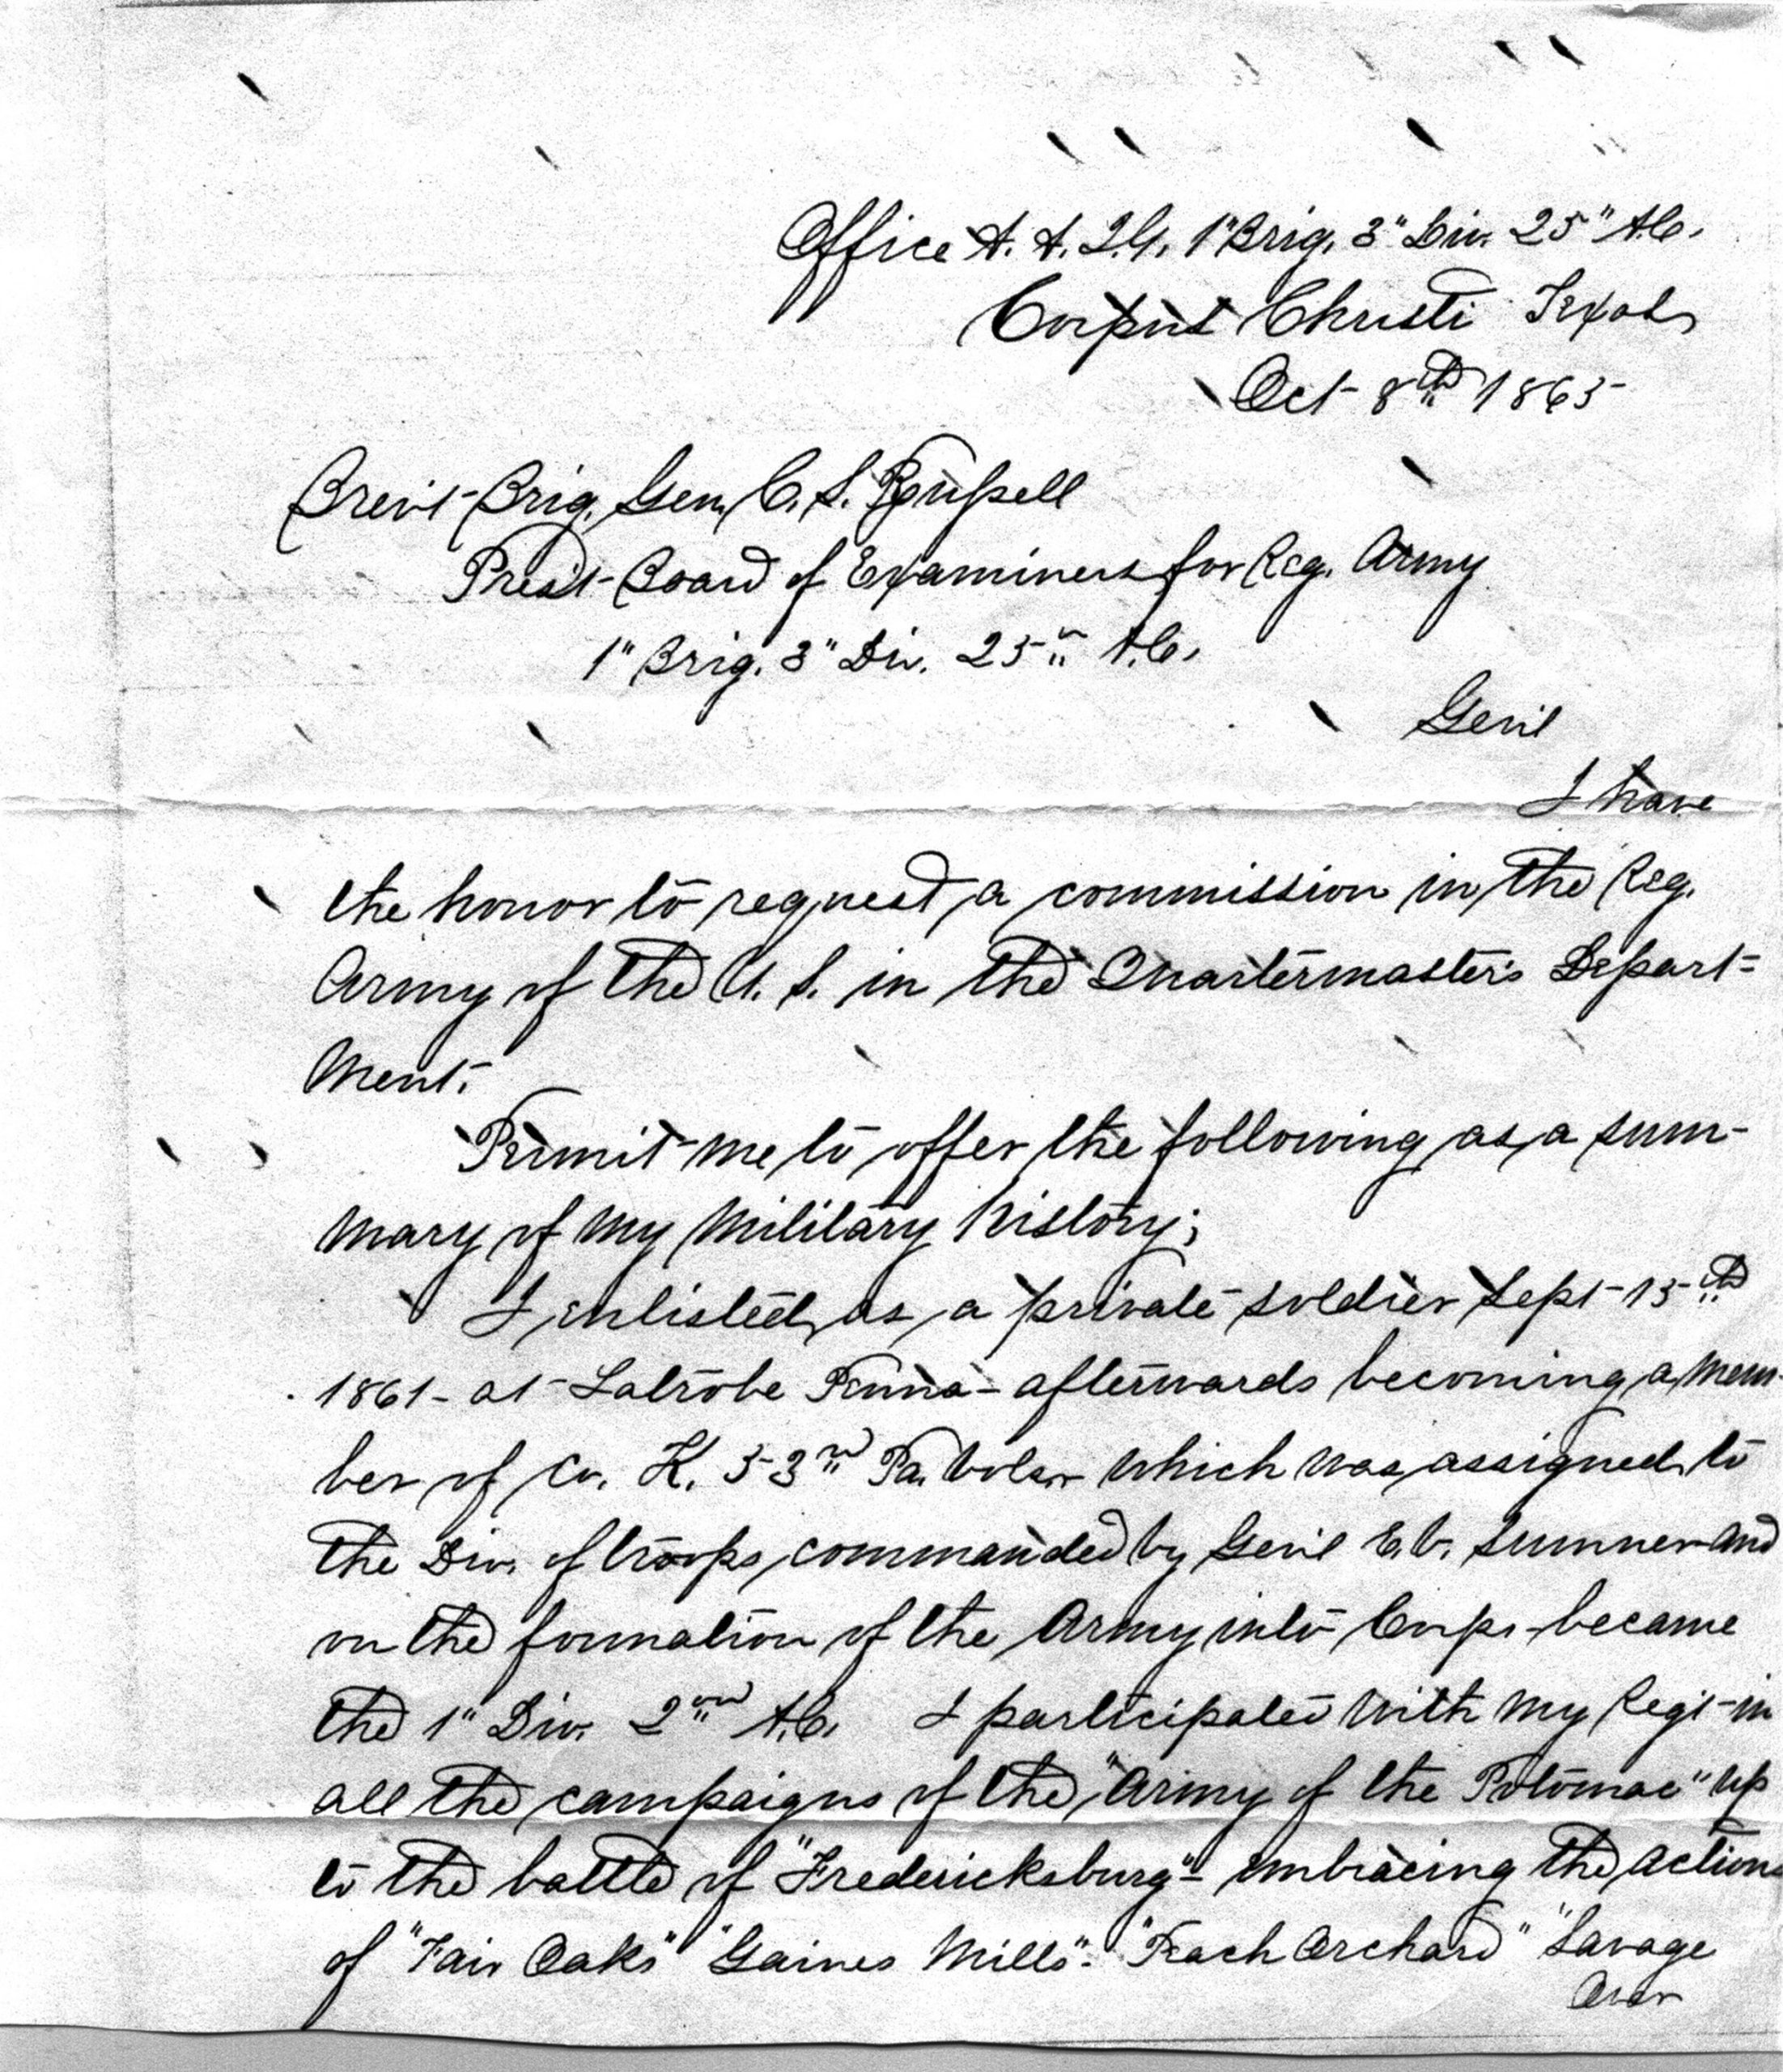 Office A. A. Q.M. 1" Brig. 3" Div. 25" A.C.
Corpus Christi Texas
Oct 8th 1865
Brevt Brig. Gen. C. S. Russell
Presdt Board of Examiners for Reg. Army
1" Brig. 3" Div. 25th A.C.
Genl
I have
the honor to request a commission in the Reg.
Army of the U. S. in the Quartermaster's Depart=
ment.
Permit me to offer the following as a sum-
mary of my military history;
I enlisted as a private soldier Sept 15th
1861 - at Latrobe Penna - afterwards becoming a mem-
ber of Co. K. 53rd Pa. Vols. which was assigned to
the Div. of troops commanded by Genl E.V. Sumner and
on the formation of the Army into Corps became
the 1" Div. 2nd A.C. I participated with my Regt in
all the campaigns of the "Army of the Potomac" up
to the battle of "Fredericksburg" - embracing the actions
of "Fair Oaks" "Gaines Mills" - "Peach Orchard" "Savage
Over